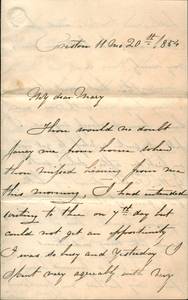 20th /884
My dear Mary
Thou would no doubt
fancy me from home when
thou missed hearing from me
this morning, I had intended
writing to thee on 7th day but
could not get an opportunity
I was so busy and yesterday I
spent very agreeably with my